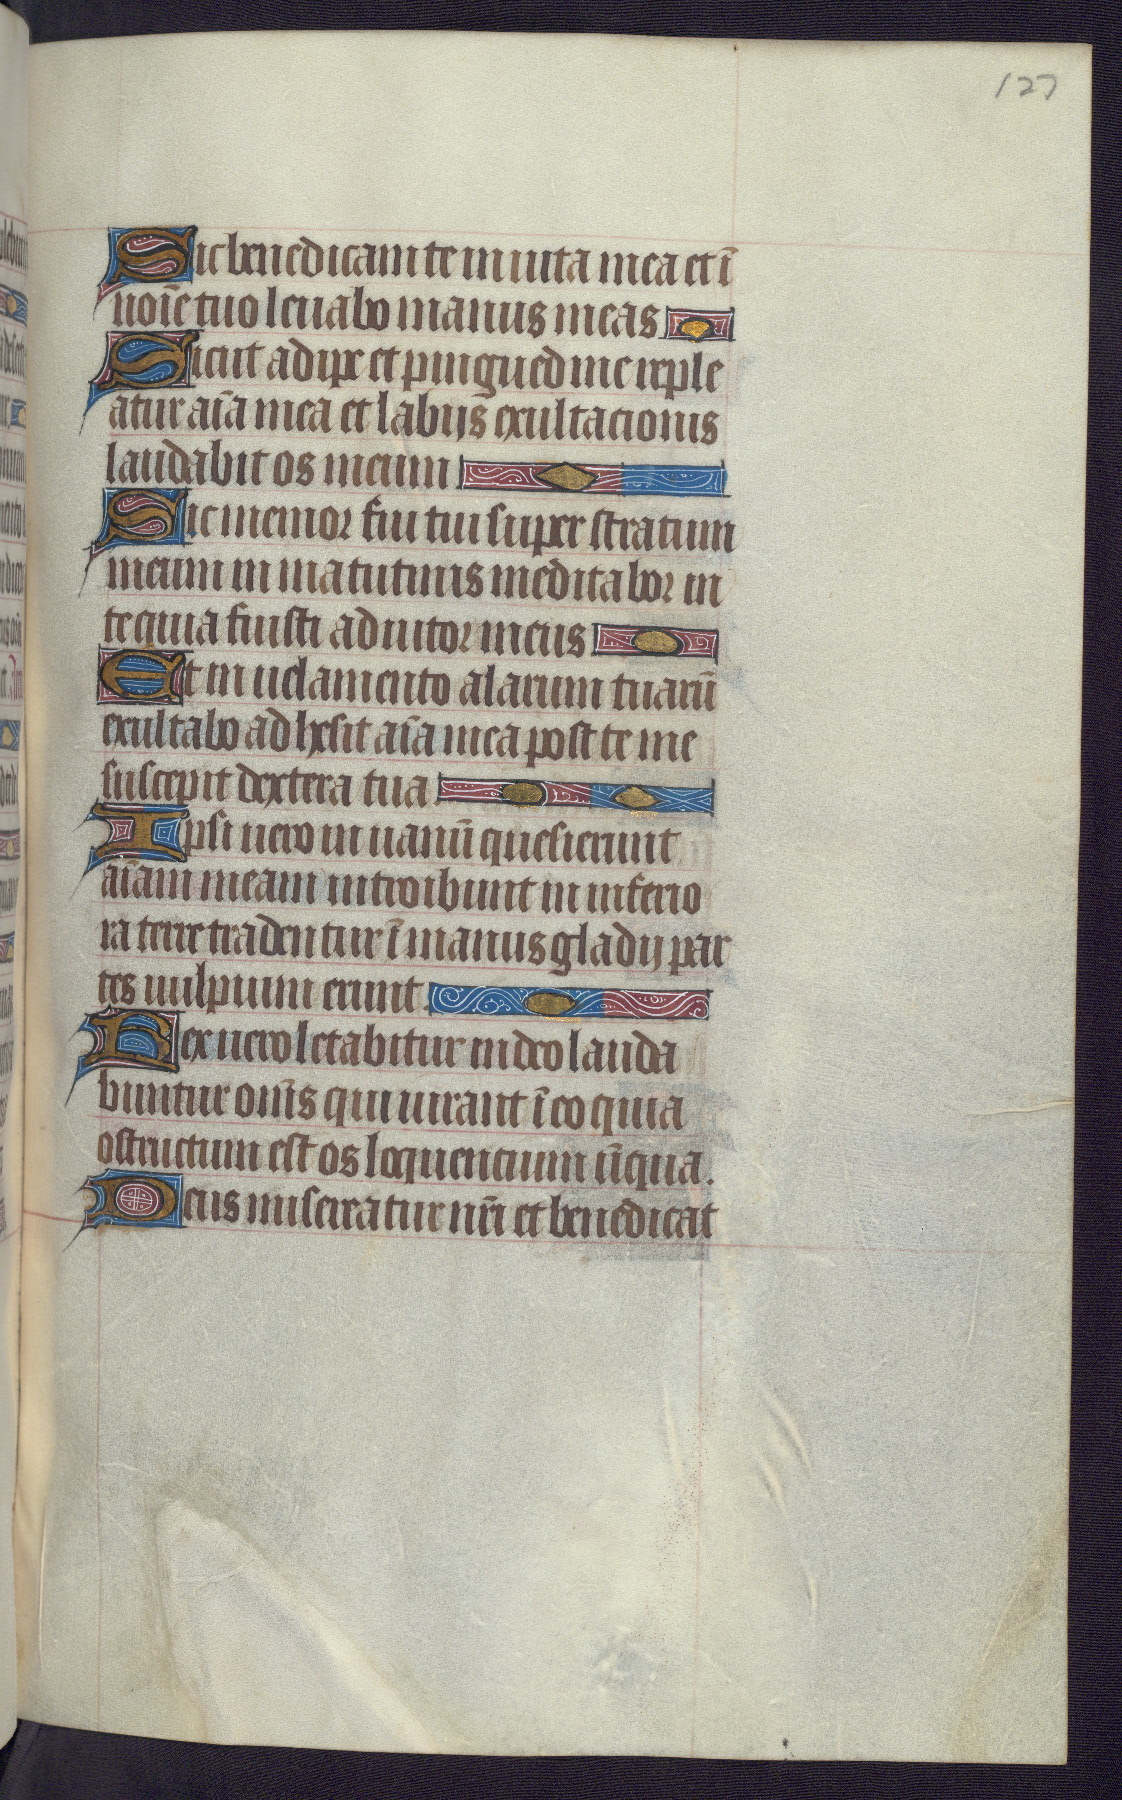 127
Sic benedicam te in uita mea et ī
noīe tuo leuabo manus meas
Sicut adipe et pinguedine reple
atur aīa mea et labijs exultacionis
laudabit os meum
Sic memor fui tui super stratum
meum in matutinis meditabor in
te quia fuisti adiutor meus
Et in uelamento alarum tuarū
exultabo adhesit aīa mea post te me
suscepit dextera tua
Ipsi uero in uanū quesierunt
aīam meam introibunt in inferio
ra terre tradentur ī manus gladij par
tes uulpium erunt.
Rex uero letabitur in deo lauda
buntur om̄s qui iurant ī eo quia
ostructum est os loquencium īiqua.
Deus misereatur nr̄i et benedicat